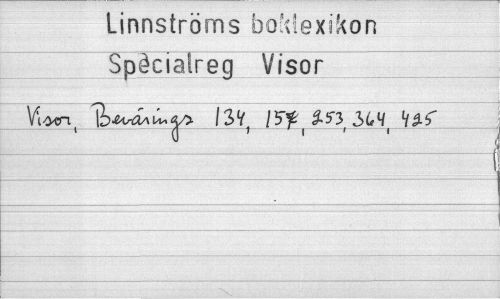 Linnströms boklexikon
Specialreg Visor
Visor, Bevärings 134, 157, 253, 364, 425